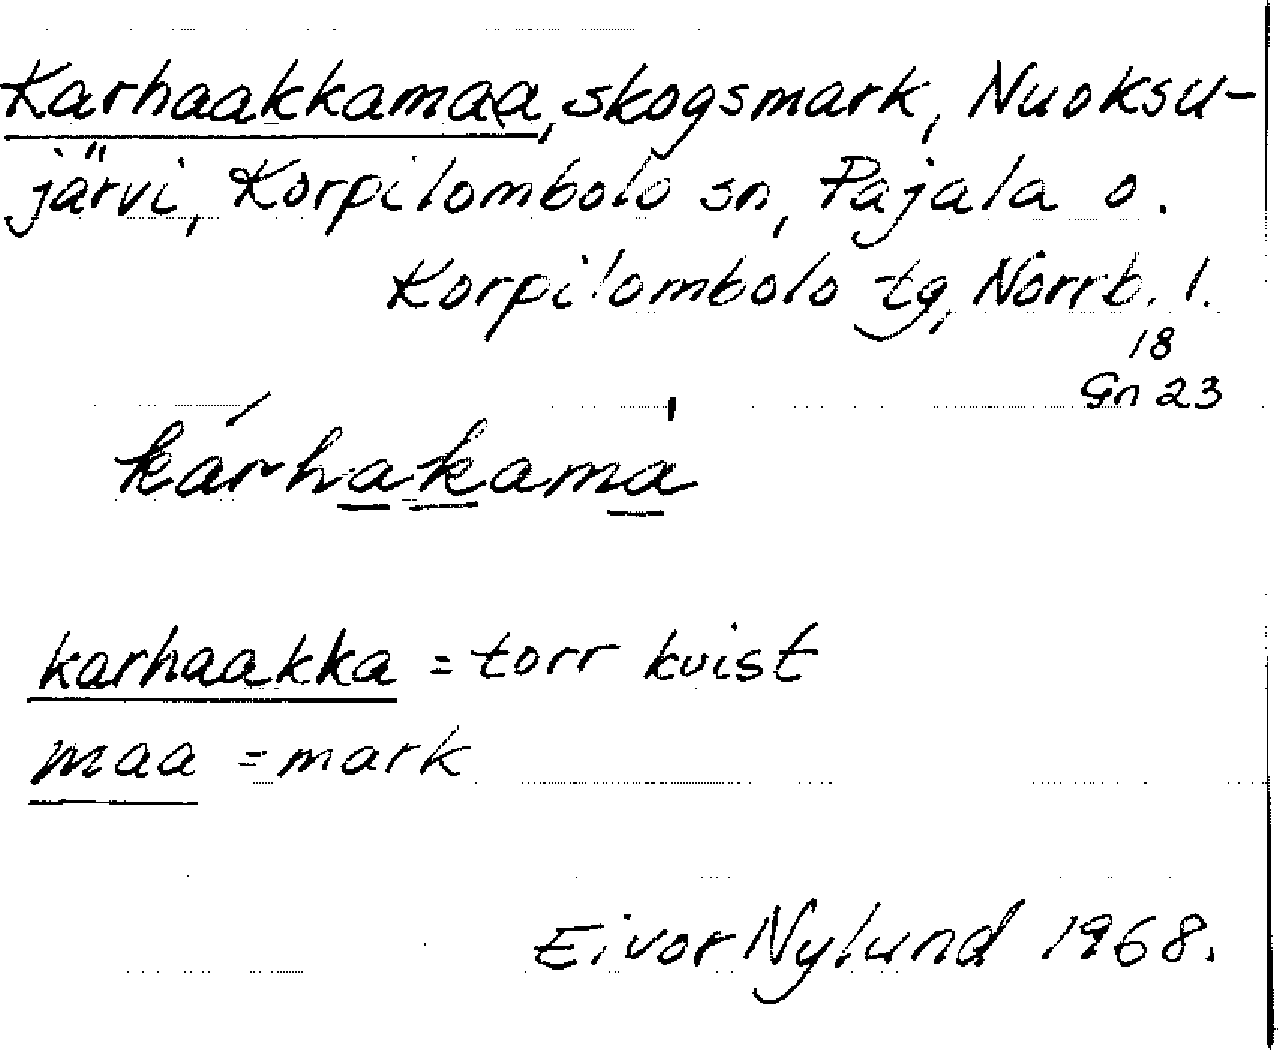 Karhaakkamaa, skogsmark, Nuoksu-
järvi, Korpilombolo sn, Pajala o.
Korpilombolo tg, Norrb. l.
18
Gn 23
kárhakama̍
karhaakka = torr kvist
maa = mark
Eivor Nylund 1968.